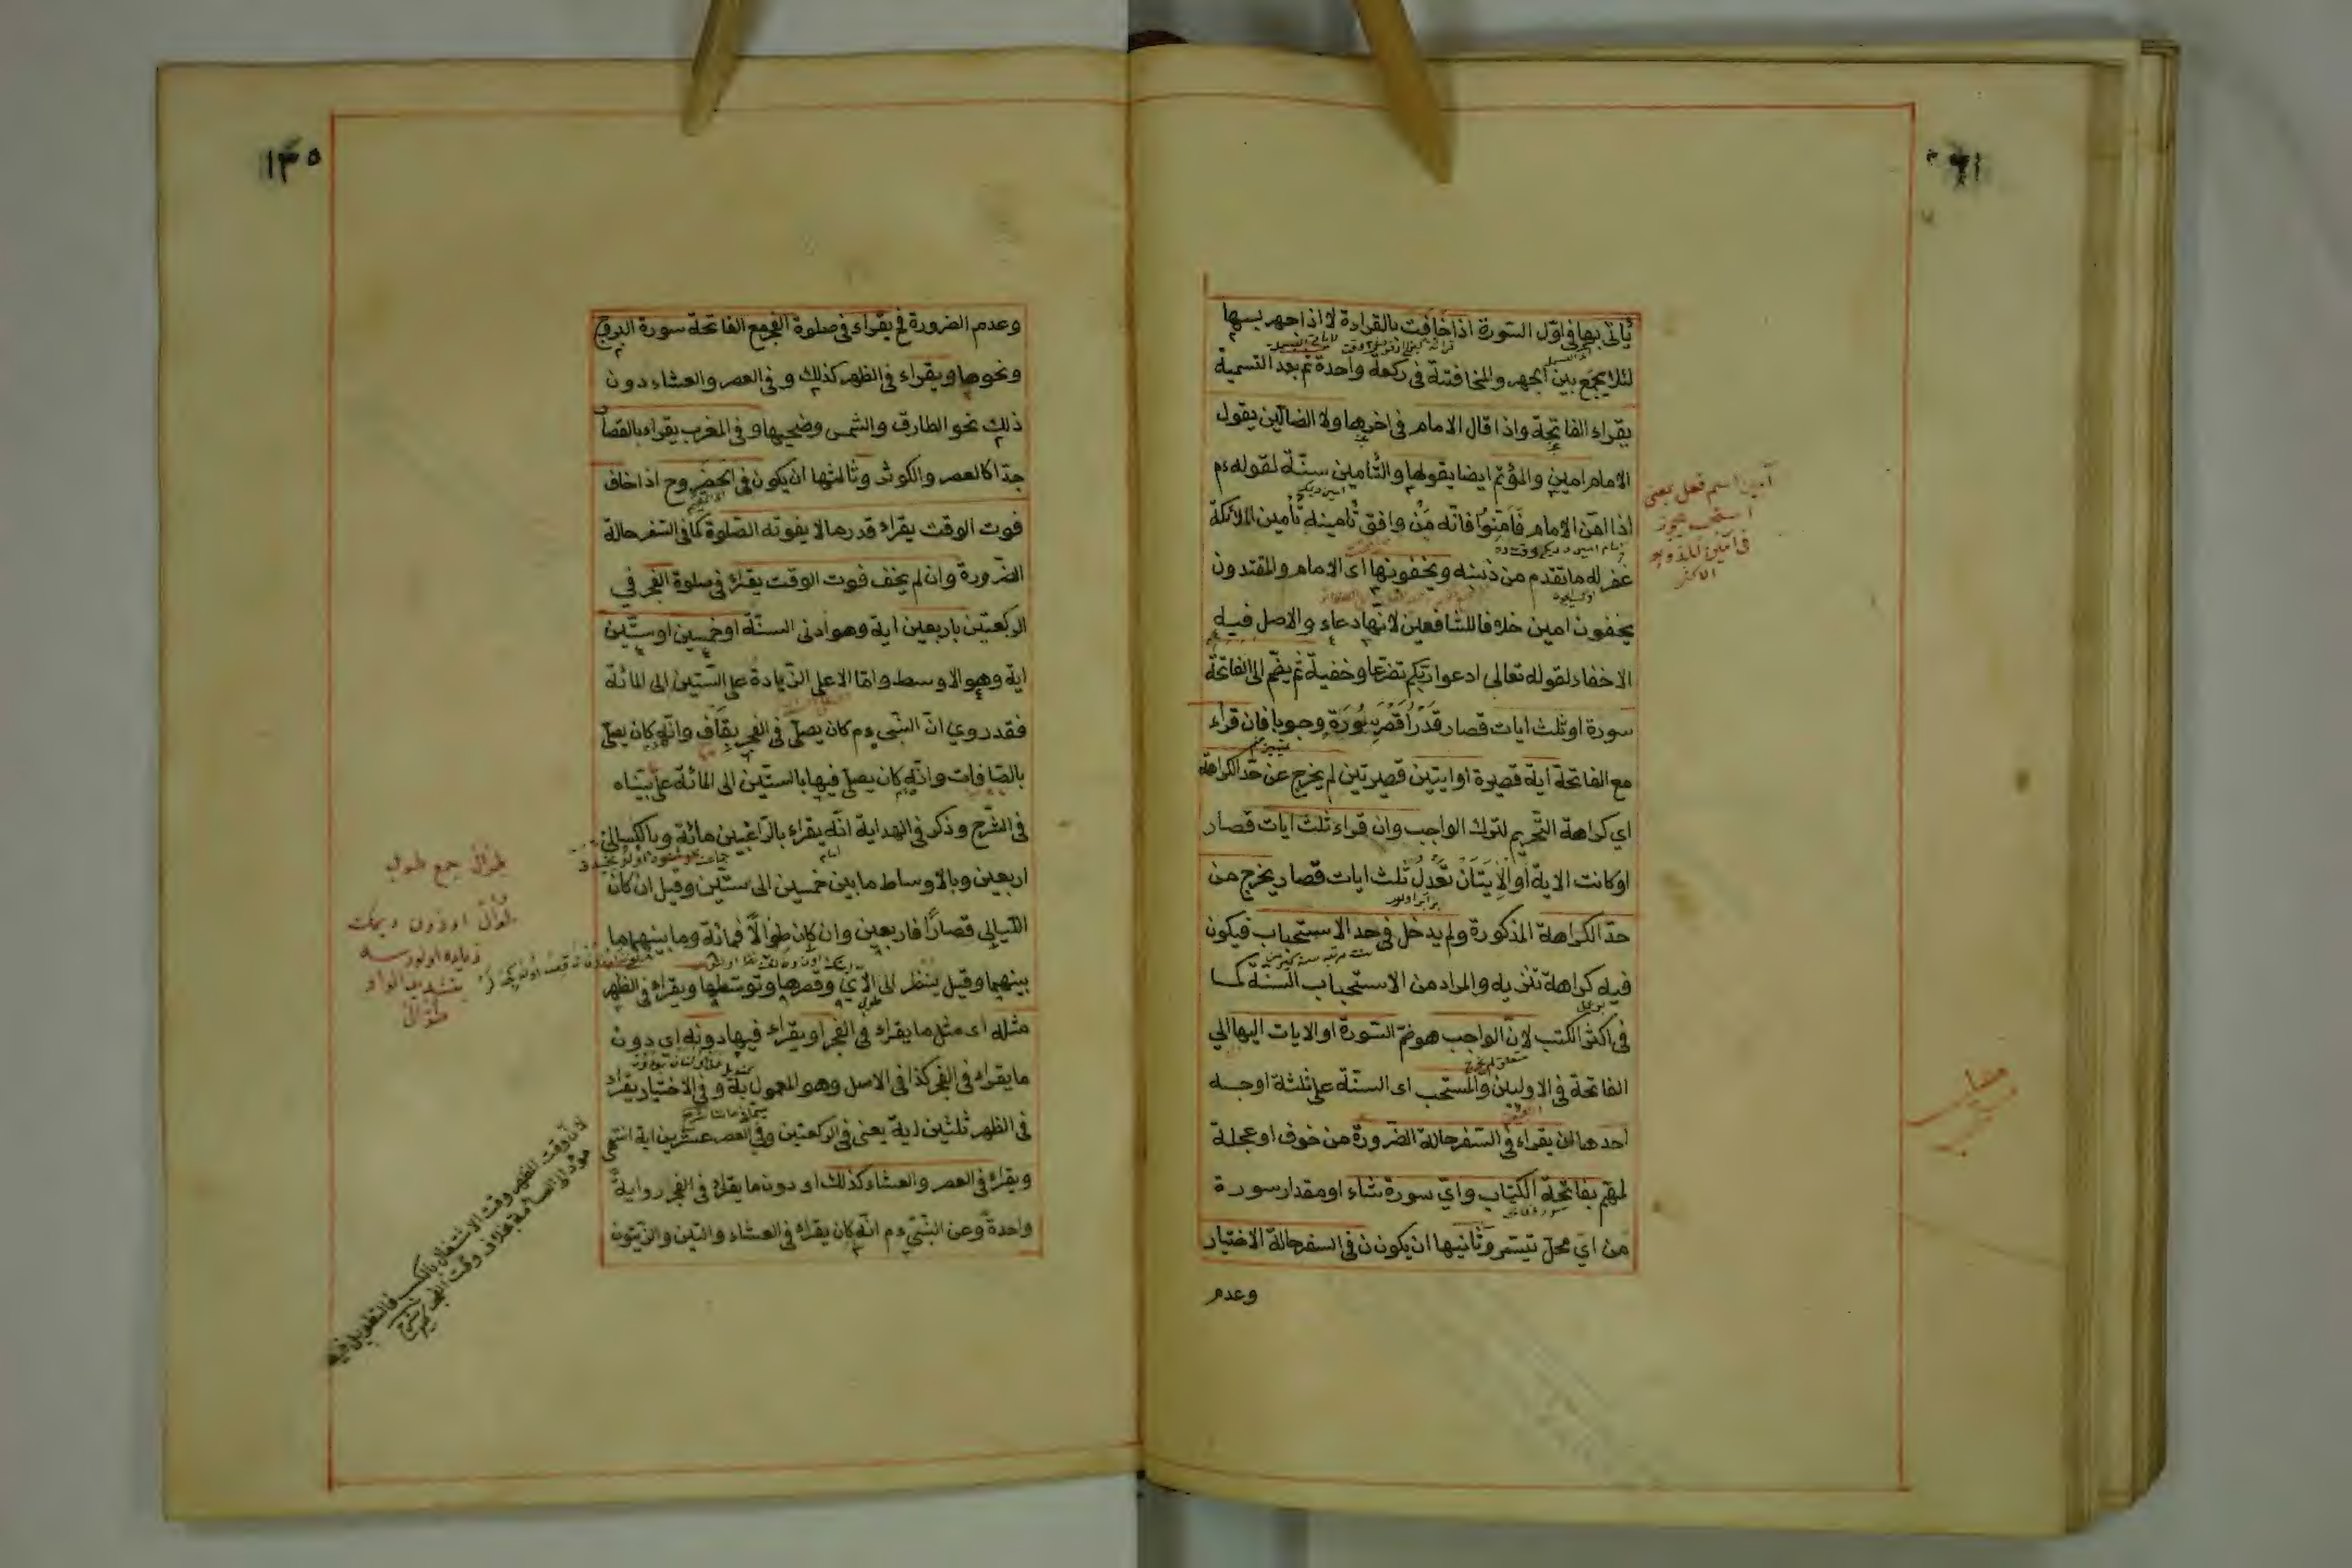 يأتى بها فى اوّل السّورة اذا خافت بالقراءة لا اذا جهر بها
لئلا يجمع بين الجهر والمخافتة فى ركعة واحدة ثم بعد التسمية
يقراء الفاتحة واذا قال الامام فى اخرها ولا الضالّين يقول
الامام امين والمؤتم ايضا يقولها والتّأمين سنّة لقوله ءم
اذا امّن الامام فَأمِّنُوا فانّه مَن وافق تأمينه تأمين الملائكة
غفر له ما تقدم من ذنبه ويخفونها اى الامام والمقتدون
يخفون امين خلافا للشافعين لانّها دعاء والاصل فيه
الاخفاء لقوله تعالى ادعوا ربّكم تضرّعا وخفية ثم يضمّ الى الفاتحة
سورة او ثلث ايات قصار قَدْرَ اقصر سُورَة وجوبا فان قراء
مع الفاتحة اية قصيرة او ايتين قصيرتين لم يخرج عن حدّ الكراهة
اى كراهة التّحريم لترك الواجب وان قراء ثلث ايات قصار
او كانت الاية أو الاٰيَتَان تَعْدِلُ ثلث ايات قصار يخرج من
حدّ الكراهة المذكورة ولم يدخل فى حد الاستحباب فيكون
فيه كراهة تنزيه والمراد من الاستحباب السّنّة كما
فى اكثر الكتب لانّ الواجب هو ضمّ السّورة او الايات اليها الي
الفاتحة فى الاوليين والمستحب اى السّنّة على ثلثة اوجه
احدها ان يقراء فى السّفر حالة الضّرورة من خوف او عجلة
لمهّم بفاتحة الكتاب وايّ سورة شاء او مقدار سورة
من ايّ محلّ تيسّر وثانيها ان يكون ن فى السفر حالة الاختيار
وعدم
آمين اسم فعل بمعنى
استجب
الاكثر
١٣٥
وعدم الضرورة فح يقراء فى صلوة الفجر مع الفاتحة سورة البروج
ونحوها ويقراء فى الظهر كذلك و فى العصر والعشاء دون
ذلك نحو الطارق والشّمس وضحيها و فى المغرب يقراء بالقصار
جدّا كالعصر والكوثر وثالثها ان يكون فى الحَضَر وح اذا خاف
فوت الوقت يقراء قدر ما لا يفوته الصّلوة كما فى السّفر حالة
الضّرورة وان لم يخف فوت الوقت يقراء فى صلوة الفجر في
الركعتين باربعين اية وهو ادنى السنّة او خمسين او ستّين
اية وهو الاوسط وامّا الاعلى الزّيادة على السّتّين الى المائة
فقد روي انّ النّبى ءم كان يصلّى فى الفجر بقاف وانّه كان يصلّى
بالصّافات وانّه كان يصلّى فيها بالستّين الى المائة على ما بيّنّاه
فى الشّرح وذكر فى الهداية انّه يقراء بالرّاغبين مائة وبالكسالى
اربعين وبالاوساط ما بين خمسين الى ستّين وقيل ان كان
اللّيالى قصارًا فاربعين وان كان طوالًا فمائة وما بينهما ما
بينهما وقيل ينظر الى الآي وقصرها وتوسّطها ويقراء فى الظهر
مثله اى مثل ما يقراء فى الفجر او يقراء فيها دونه اى دون
ما يقراء فى الفجر كذا فى الاصل وهو المعمول به و فى الاختيار يقراء
فى الظهر ثلثين اية يعنى فى الركعتين و فى العصر عشرين اية انتهى
ويقراء فى العصر والعشاء كذلك او دون ما يقراء فى الفجر رواية
واحدة وعن النّبيّ ءم انّه كان يقراء فى العشاء والتين والزّيتون
طوال جمع طويل
طوال اوزون ديمك
زياده اولورسه
بتشديد الواو
طوّال
لان وقت الظهر وقت الاشتغال بالكسب فالتطويل فيه
مؤد الى السآمة بخلاف وقت الفجر